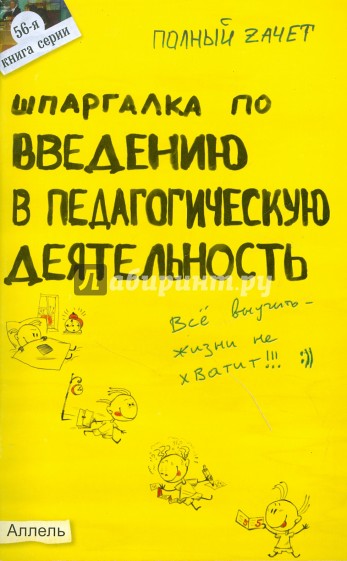 56-я
книга серии
ПОЛНЫЙ ZАЧЕТ
ШПАРГАЛКА ПО
ВВЕДЕНИЮ
В ПЕДАГОГИЧЕСКУЮ
ДЕЯТЕЛЬНОСТЬ
Лабиринт.ру
Всё выучить –
жизни не
хватит!!! :)))
5
Аллель